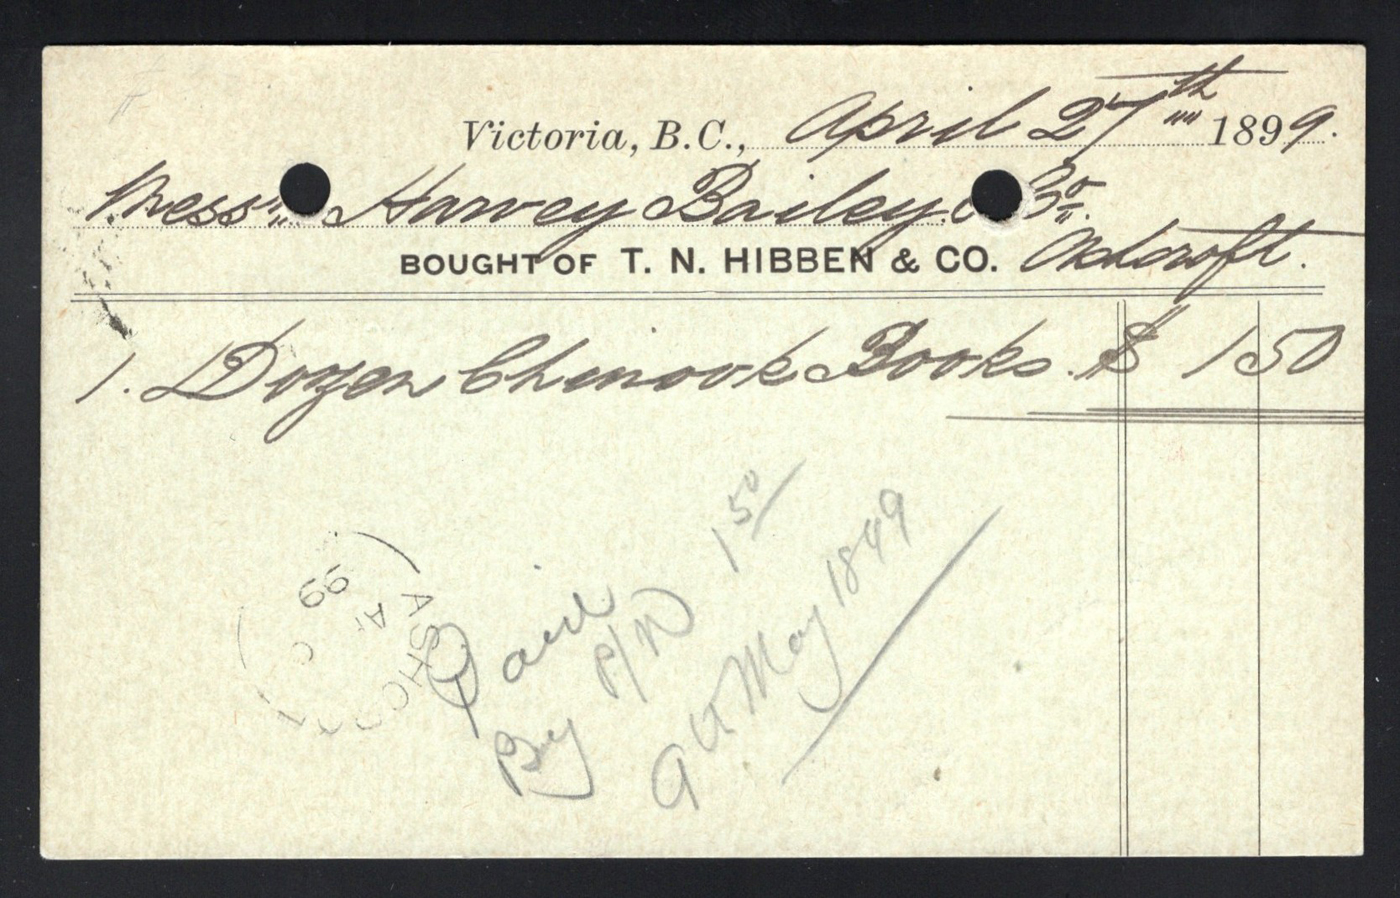 Victoria, B.C., April 27th 1899.
Messrs Harvey Bailey & Co.
BOUGHT OF T. N. HIBBEN & CO. Ashcroft.
1. Dozen Chinook Books. $ 1 50
Paid 1 50
By P/N
9th May 1899
ASHCRO
99